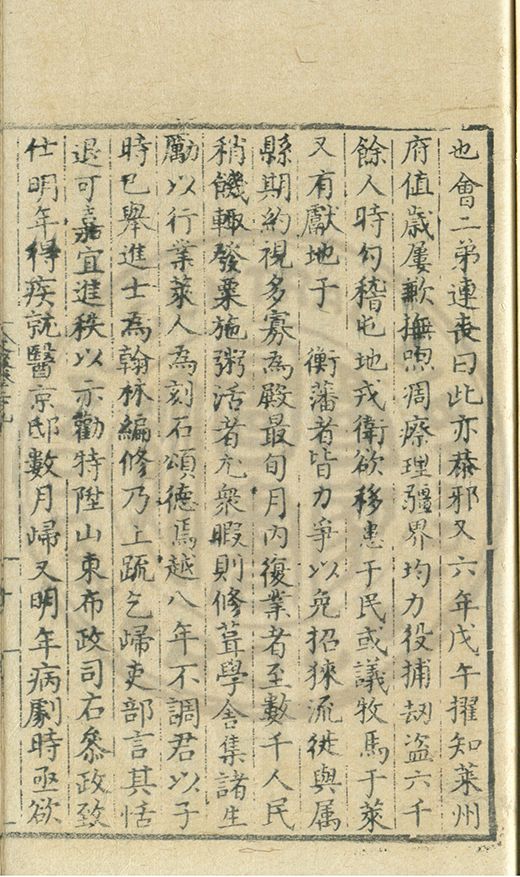 也會二弟連喪曰此亦恭邪又六年戊午擢知萊州
府值歲屢歉撫喣凋瘵理疆界均力役捕刼盜六千
餘人時勾稽屯地戎衛欲移患于民或議牧馬于萊
又有獻地于 衡藩者皆力爭以免招猍流徙與属
縣期約視多寡為殿最旬月內復業者至數千人民
稍饑輒發粟施粥活者尤衆暇則修葺學舍集諸生
勵以行業萊人為刻石頌德焉越八年不調君以子
時已舉進士為翰林編修乃上䟽乞歸吏部言其恬
退可嘉宜進秩以示勸特陞山東布政司右叅政致
仕明年得疾就醫京邸數月歸又明年病劇時亟欲